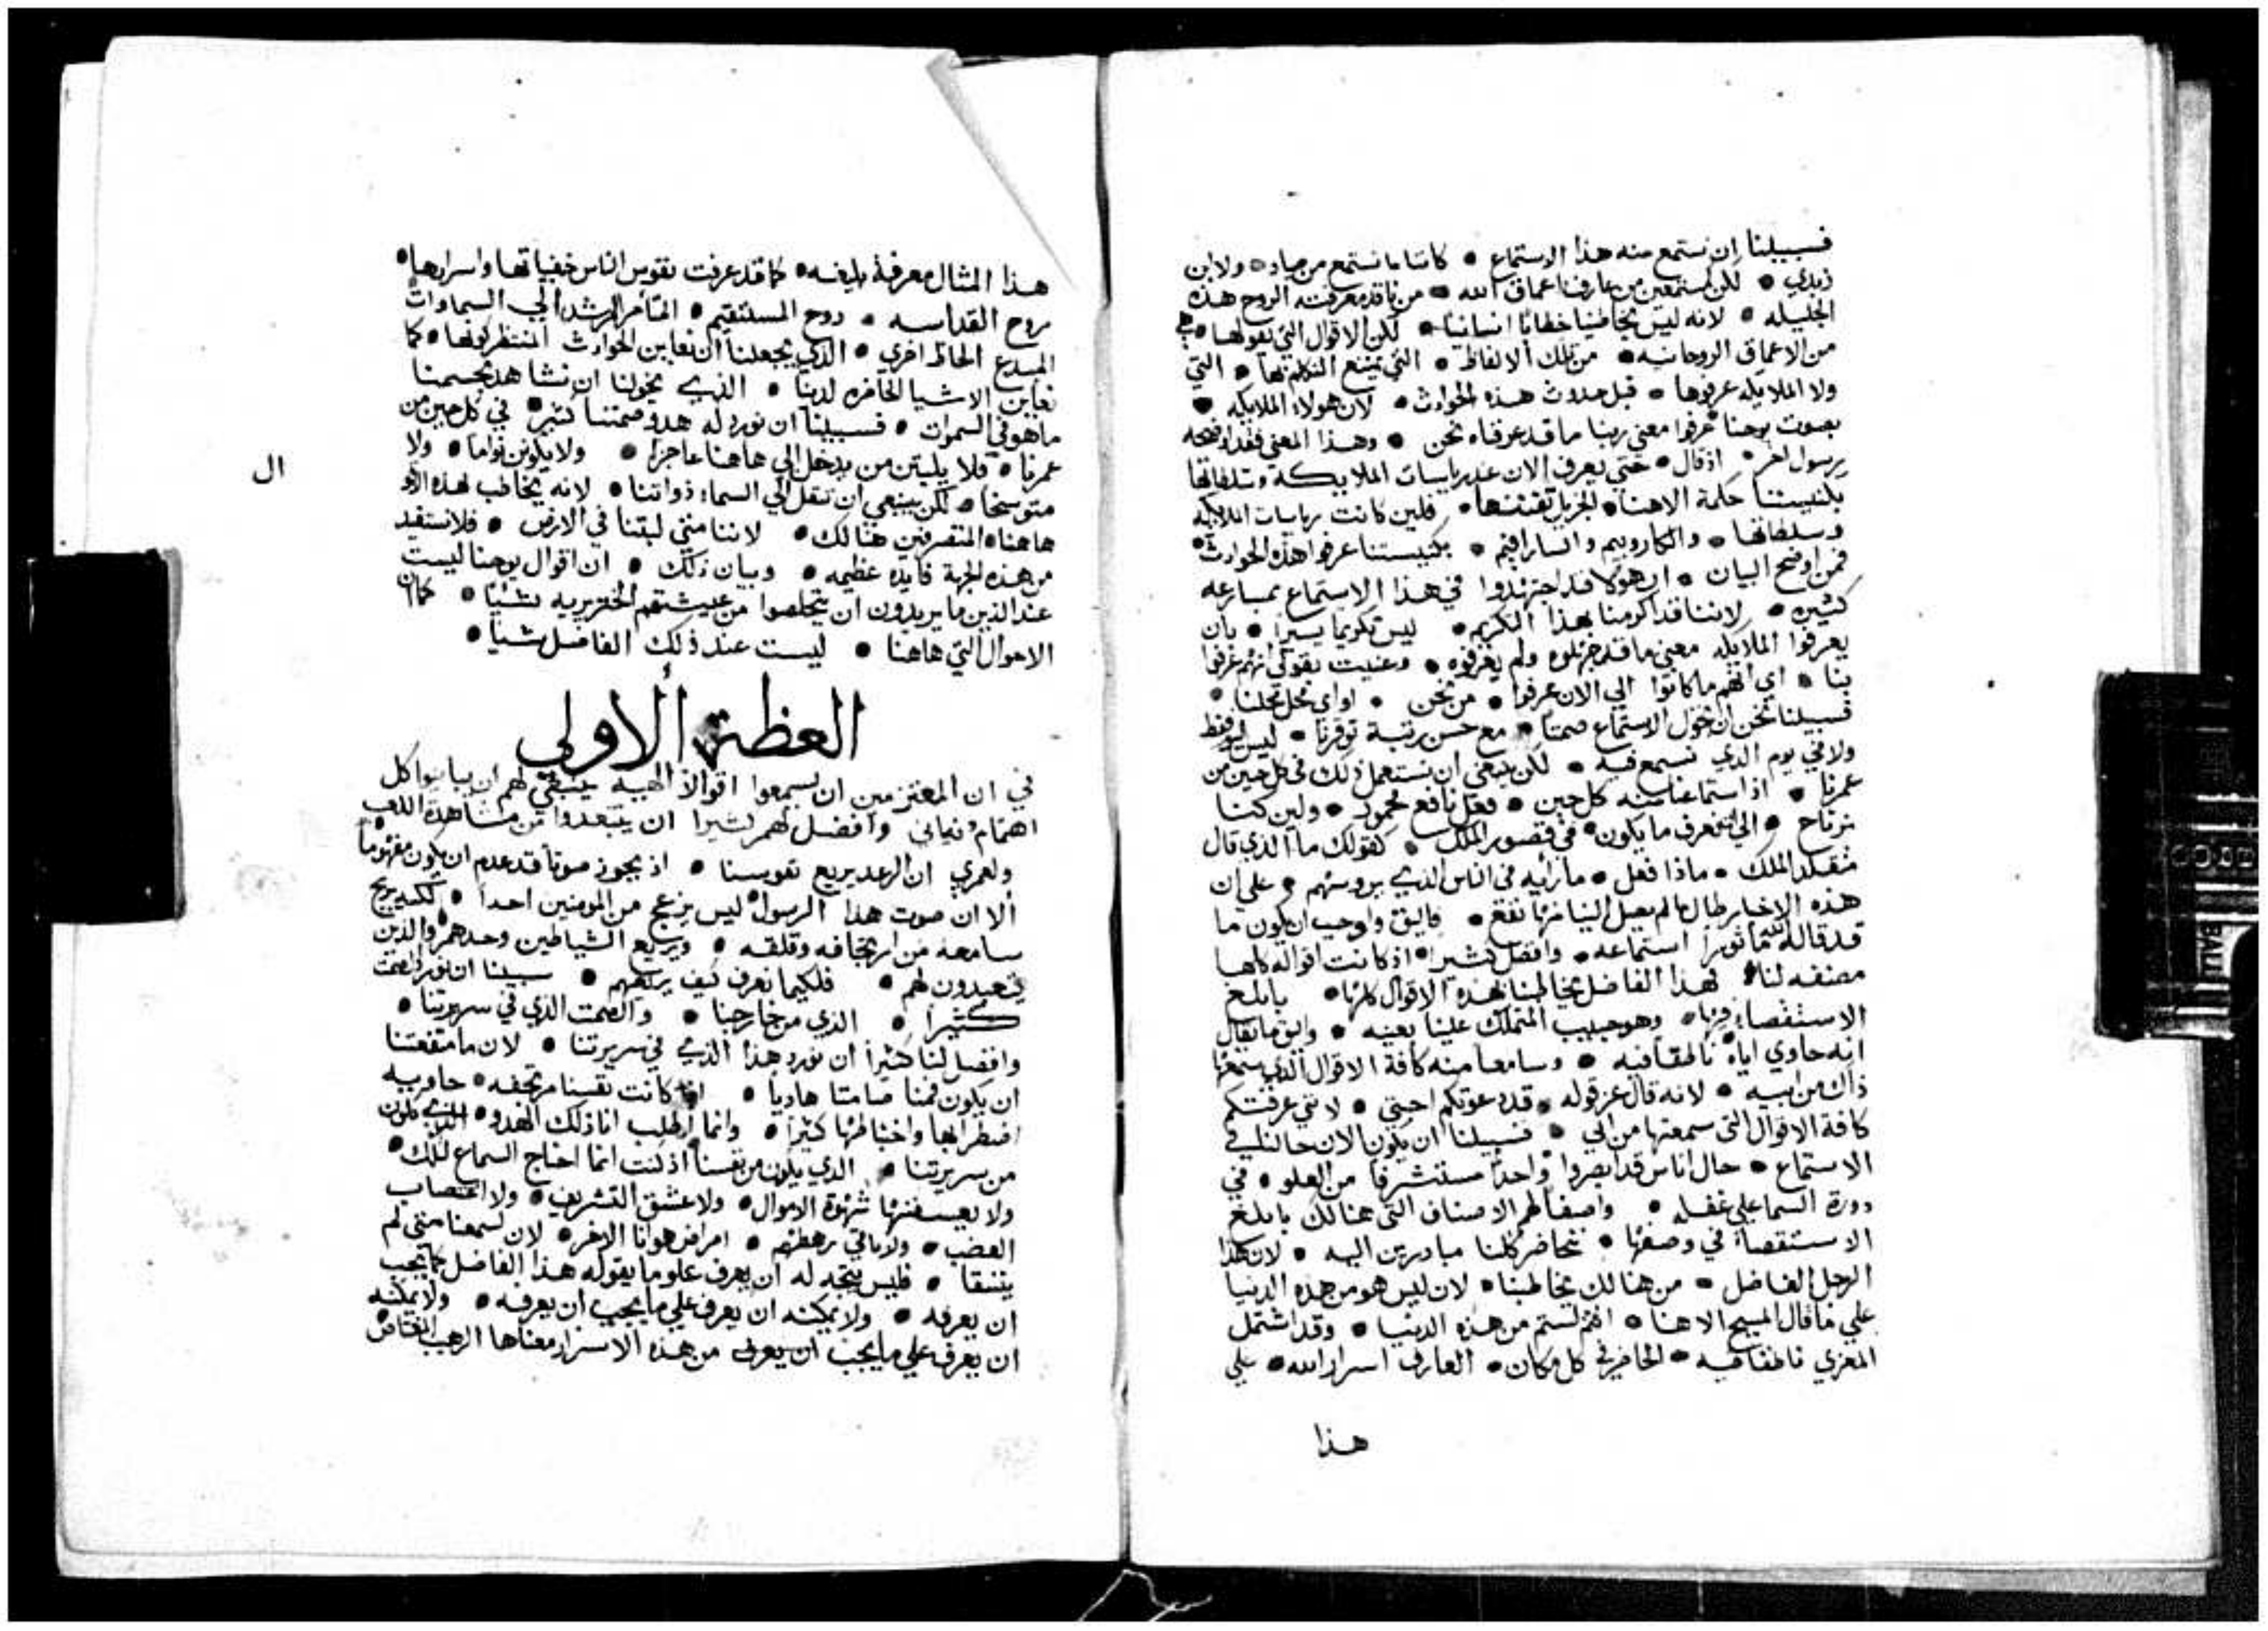 فسبيلنا ان نستمع منه هذا الاستماع • كاننا ما نستمع من صياد • ولا ابن
زبدي • لكن كمستمعين من عارف اعماق الله • من قد معرفته الروح هذه
الجليله • لانه ليس يخاطبنا خطابا انسانيا • لكن الاقوال التي نقولها • هي
من الاعماق الروحانيه • من تلك الالفاظ • التي يمتنع التكلم بها • التي
ولا الملايكه عرفوها • قبل حدوث هذه الحوادث • لان هولاء الملايكه •
بصوت يوحنا عرفوا معني ربنا ما قد عرفناه نحن • وهذا المعني فقد اوضحه
رسول اخر • اذ قال • حتي يعرف الان عند رياسات الملايكة وسلطاتها
بكنيستنا حكمة الاهنا • الجزيل تفننها • فلين كانت رياسات الملايكه
وسلطاتها • والكاروبيم والسارافيم • بكنيستنا عرفوا هذه الحوادث •
فمن اوضح البيان • ان هولا قد اجتهدوا في هذا الاستماع بمسارعه
كثيره • لاننا قد اكرمنا هذا التكريم • ليس تكريما يسيرا • بان
يعرفوا الملايكه معنا ما قد جهلوه ولم يعرفوه • وعنيت بقولي انهم عرفوا
بنا • اي انهم ما كانوا الي الان عرفوا • من نحن • او اي محل محلنا •
فسبيلنا نحن ان نخول الاستماع صمتا • مع حسن رتبة توقرنا • ليس اليوم فقط
ولا في يوم الذي نسمع فيه • لكن ينبغي ان نستعمل ذلك في كل حين من
عمرنا • اذ استماعنا منه كل حين • فعل نافع محمود • ولين كنا
نرتاح • الي ان نعرف ما يكون • في قصور الملك • كقولك ما الذي قال
متقلد الملك • ماذا فعل • ما رايه في الناس الذي يروسهم • علي ان
هذه الاخبار طال ما لم يصل الينا منها نفع • فاليق واوجب ان يكون ما
قد قاله الله ماثورا استماعه • وافضل كثيرا • اذ كانت اقواله كلها
مصنفه لنا • فهذا الفاضل يخاطبنا بهذه الاقوال كلها • بابلغ
الاستقصاء فيها • وهو حبيب المتملك علينا بعينه • واليق ما يقال
انه حاوي اياه ناطقا فيه • وسامعا منه كافة الاقوال الذي سمعها
ذاك من ابيه • لانه قال عز قوله • قد دعوتكم احبتي • لانني عرفتكم
كافة الاقوال التي سمعتها من ابي • فسبيلنا ان يكون الان حالنا في
الاستماع • حال اناس قد ابصروا واحدا مستشرفا من العلو • في
دورة السما علي غفله • واصفا لهم الاصناف التي هنالك بابلغ
الاستقصاء في وصفها • نتحاضر كلنا مبادرين اليه • لان هذا
الرجل الفاضل • من هنالك يخاطبنا • لان ليس هو من هذه الدنيا
علي ما قال المسيح الاهنا • انتم لستم من هذه الدنيا • وقد اشتمل
المعزي ناطقا فيه • الحاضر في كل مكان • العارف اسرار الله • علي
هذا
هذا المثال معرفة بليغه • كما قد عرفت نفوس الناس خفياتها واسرارها •
روح القداسه • روح المستقيم • المتامر المرشد الي السماوات
المبدع الحاظ اخري • الذي يجعلنا ان نعاين الحوادث المنتظر كونها • كما
نعاين الاشيا الحاضره لدينا • الذي يخولنا ان نشاهد بجسمنا
ما هو في السموات • فسبيلنا ان نورد له هدو صمتنا كثير • في كل حين من
عمرنا • فلا يلبثن من يدخل الي هاهنا عاجزا • ولا يكونن نواما • ولا
متوسخا • لكن ينبغي ان ننقل الي السماء ذواتنا • لانه يخاطب بهذه الاقو
ال
هاهناه المتصرفين هنالك • لاننا متي لبثنا في الارض • فلا نستفيد
من هذه الجهة فايده عظيمه • وبيان ذلك • ان اقوال يوحنا ليست
عند الذين ما يريدون ان يتخلصوا من عيشتهم الخنزيريه شيا • كما ان
الاموال التي هاهنا • ليست عند ذلك الفاضل شيا •
العظة الاولى
في ان المعتزمين ان يسمعوا اقوالا الهيه ينبغي لهم ان يباينوا كل
اهتمام دنياني وافضل لهم كثيرا ان يتبعدوا من مشاهدة اللعب
ولعمري ان الرعد يريع نفوسنا • اذ يجوز صوتا قد عدم ان يكون مفهوما
الا ان صوت هذا الرسول ليس يزعج من المومنين احدا • لكنه يريح
سامعه من ارتجافه وقلقه • ويريع الشياطين وحدهم والذين
يتعبدون لهم • فلكيما نعرف كيف يريعهم • سبيلنا ان نورد الصمت
كثيرا • الذي من خارجنا • والصمت الذي في سريرتنا •
وافضل لنا كثيرا ان نورد هذا الذي في سريرتنا • لان ما منفعتنا
ان يكون فمنا صامتا هاديا • اذا كانت نفسنا مرتجفه • حاويه
اضطرابها واختباطها كثيرا • وانما اطلب انا ذلك الهدو • الذي يكون
من سريرتنا • الذي يكون من نفسنا اذ كنت انما احتاج السماع لتلك •
ولا يعسفنها شهوة الاموال • ولا عشق التشريف • ولا اغتصاب
الغضب • ولا باقي رهطهم • امراض هوانا الاخر • لان لسمعنا متي لم
يتنقا • فليس يتجه له ان يعرف علو ما يقوله هذا الفاضل كما يجب
ان يعرفه • ولا يمكنه ان يعرف علي ما يجب ان يعرفه • ولا يمكنه
ان يعرف علي ما يجب ان يعرف من هذه الاسرار معناها الرهيب الغامض